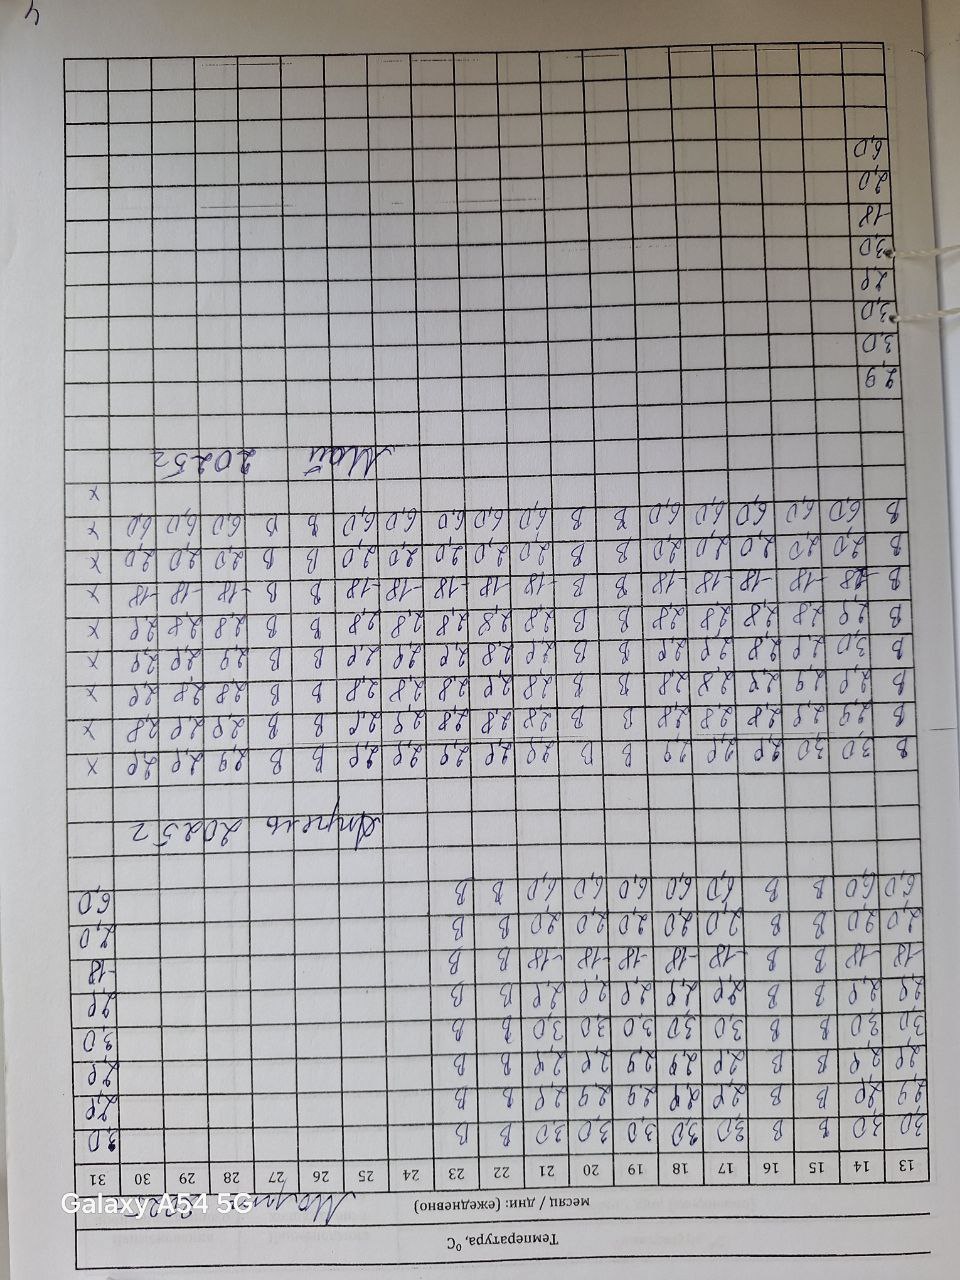 Температура, °C
месяц / дни: (ежедневно) Март 2025
13 14 15 16 17 18 19 20 21 22 23 24 25 26 27 28 29 30 31
3,0 3,0 В В 3,0 3,0 3,0 3,0 3,0 В В 3,0
2,9 2,9 В В 2,9 2,9 2,9 2,9 2,9 В В 2,9
2,9 2,9 В В 2,9 2,9 2,9 2,9 2,9 В В 2,9
3,0 3,0 В В 3,0 3,0 3,0 3,0 3,0 В В 3,0
2,9 2,9 В В 2,9 2,9 2,9 2,9 2,9 В В 2,9
-18 -18 В В -18 -18 -18 -18 -18 В В -18
2,0 2,0 В В 2,0 2,0 2,0 2,0 2,0 В В 2,0
6,0 6,0 В В 6,0 6,0 6,0 6,0 6,0 В В 6,0
Апрель 2025 г
В 3,0 3,0 2,9 2,9 2,9 В В 2,9 2,9 2,9 2,9 2,9 В В 2,9 2,9 2,9 х
В 2,9 2,9 2,8 2,8 2,8 В В 2,8 2,8 2,8 2,9 2,9 В В 2,9 2,9 2,8 х
В 2,9 2,9 2,9 2,8 2,8 В В 2,8 2,9 2,8 2,8 2,8 В В 2,8 2,8 2,9 х
В 3,0 2,9 2,8 2,9 2,9 В В 2,9 2,8 2,9 2,9 2,9 В В 2,9 2,9 2,9 х
В 2,9 2,8 2,8 2,8 2,8 В В 2,8 2,8 2,8 2,8 2,8 В В 2,8 2,8 2,9 х
В -18 -18 -18 -18 -18 В В -18 -18 -18 -18 -18 В В -18 -18 -18 х
В 2,0 2,0 2,0 2,0 2,0 В В 2,0 2,0 2,0 2,0 2,0 В В 2,0 2,0 2,0 х
В 6,0 6,0 6,0 6,0 6,0 В В 6,0 6,0 6,0 6,0 6,0 В В 6,0 6,0 6,0 х
х
Май 2025 г
2,9
3,0
3,0
2,9
3,0
-18
2,0
6,0
4
Galaxy A54 5G